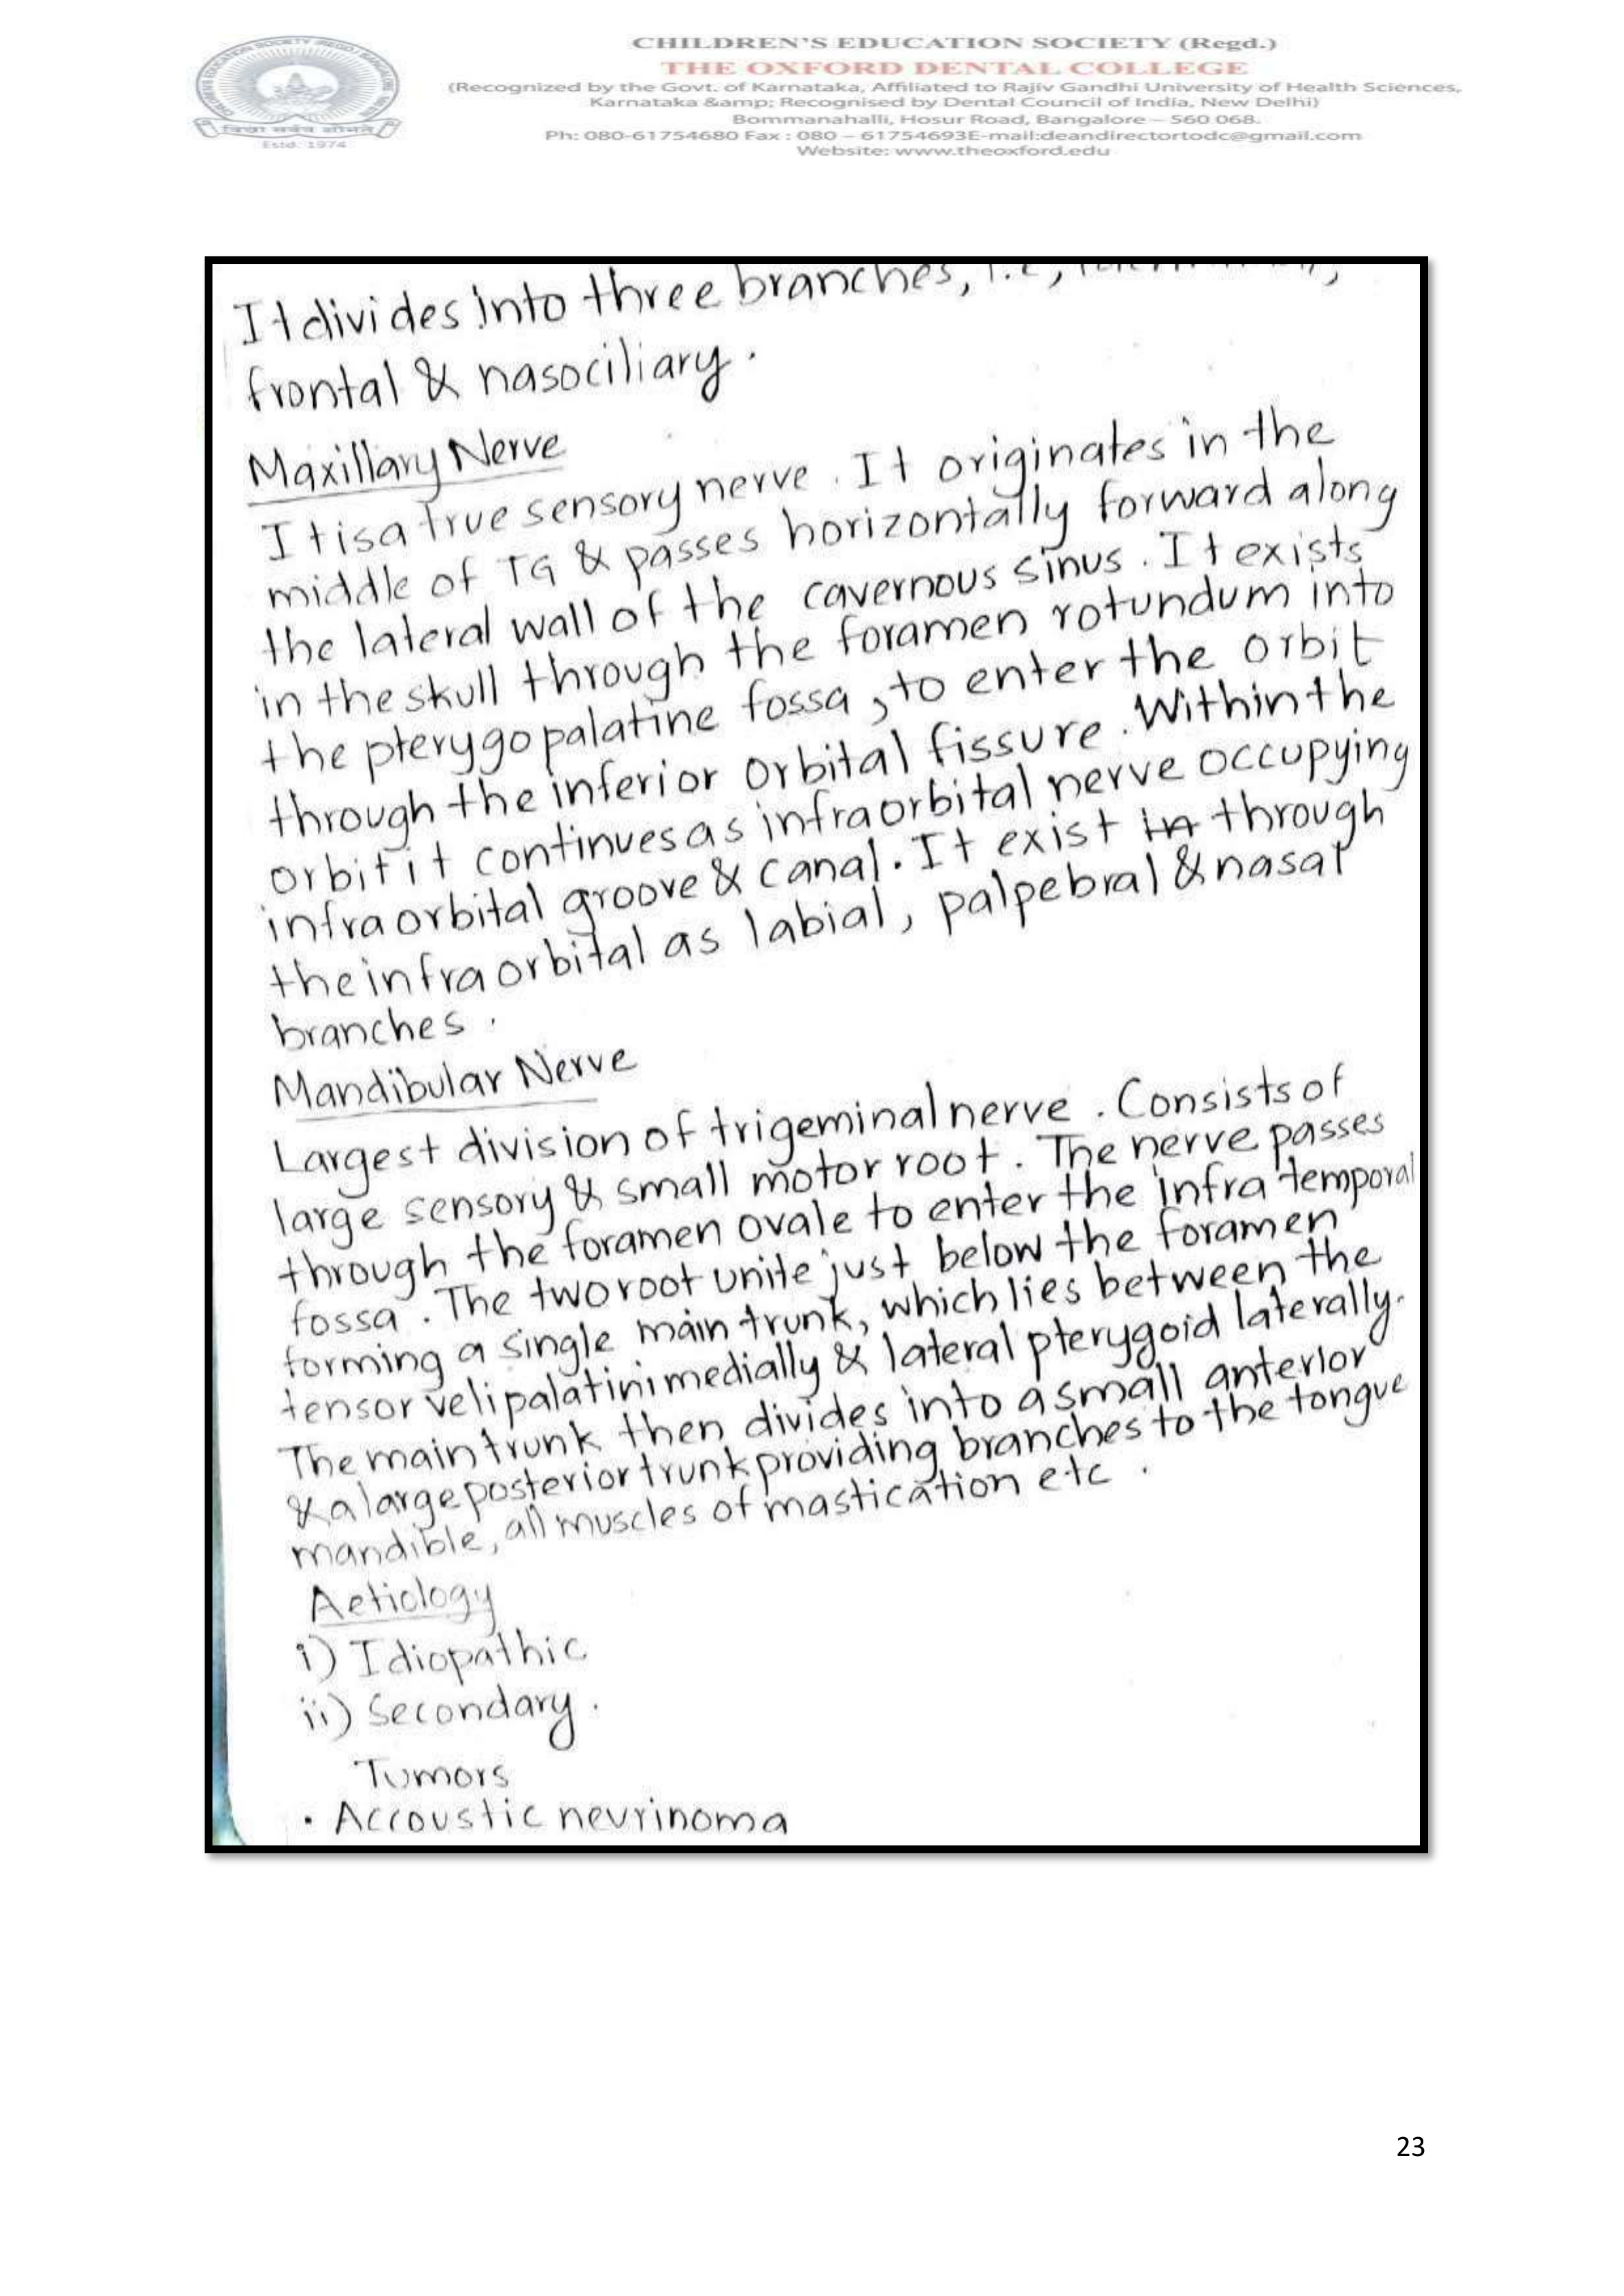 CHILDREN'S EDUCATION SOCIETY (Regd.)
THE OXFORD DENTAL COLLEGE
(Recognized by the Govt. of Karnataka, Affiliated to Rajiv Gandhi University of Health Sciences,
Karnataka &amp; Recognised by Dental Council of India, New Delhi)
Bommanahalli, Hosur Road, Bangalore – 560 068.
Ph: 080-61754680 Fax : 080 – 61754693E-mail:deandirectortodc@gmail.com
Website: www.theoxford.edu
Estd. 1974
It divides into three branches, i.e,
frontal & nasociliary.
Maxillary Nerve
It is a true sensory nerve. It originates in the
middle of TG & passes horizontally forward along
the lateral wall of the cavernous sinus. It exists
in the skull through the foramen rotundum into
the pterygopalatine fossa, to enter the orbit
through the inferior orbital fissure. Within the
orbit it continues as infraorbital nerve occupying
infraorbital groove & canal. It exist in through
the infraorbital as labial, palpebral & nasal
branches.
Mandibular Nerve
Largest division of trigeminal nerve. Consists of
large sensory & small motor root. The nerve passes
through the foramen ovale to enter the infra temporal
fossa. The two root unite just below the foramen
forming a single main trunk, which lies between the
tensor veli palatini medially & lateral pterygoid laterally.
The main trunk then divides into a small anterior
& a large posterior trunk providing branches to the tongue
mandible, all muscles of mastication etc.
Aetiology
i) Idiopathic
ii) Secondary.
Tumors
• Accoustic neurinoma
23